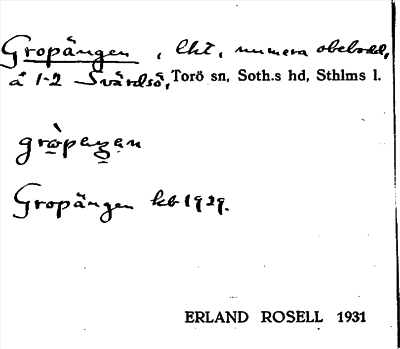 Gropängen, lht, numera obebodd,
å 1-2 Svärdsö, Torö sn, Soth.s hd, Sthlms l.
Gropängen kb 1929.
ERLAND ROSELL 1931